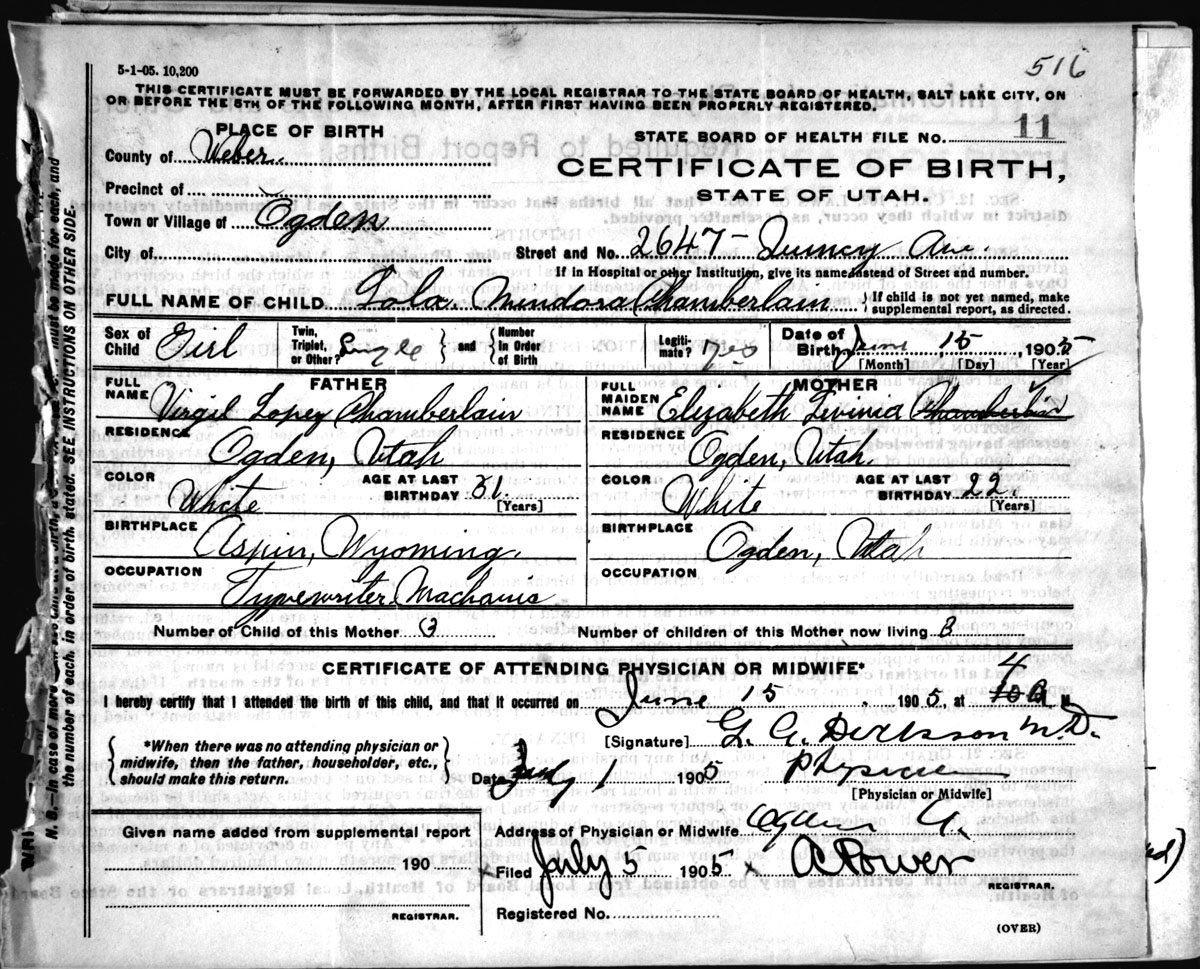 516
5-1-05. 10,200
THIS CERTIFICATE MUST BE FORWARDED BY THE LOCAL REGISTRAR TO THE STATE BOARD OF HEALTH, SALT LAKE CITY, ON
OR BEFORE THE 5TH OF THE FOLLOWING MONTH, AFTER FIRST HAVING BEEN PROPERLY REGISTERED.
PLACE OF BIRTH
STATE BOARD OF HEALTH FILE No. 11
County of Weber.
CERTIFICATE OF BIRTH,
Precinct of
STATE OF UTAH.
Town or Village of Ogden
City of
Street and No. 2647 - Ave.
If in Hospital or other Institution, give its name instead of Street and number.
FULL NAME OF CHILD Lola Chamberlain } If child is not yet named, make
supplemental report, as directed.
Sex of Child Girl
Twin, Triplet, or Other? Single } and { Number In Order of Birth
Legiti- mate? Yes
Date of Birth June 15 1905
[Month] [Day] [Year]
FATHER
FULL NAME Virgil Lopey Chamberlain
RESIDENCE
Ogden, Utah
COLOR White
AGE AT LAST BIRTHDAY 31. [Years]
BIRTHPLACE
Aspin, Wyoming.
OCCUPATION
Typewriter
MOTHER
FULL MAIDEN NAME Elizabeth Chamberlain
RESIDENCE
Ogden, Utah.
COLOR White
AGE AT LAST BIRTHDAY 22. [Years]
BIRTHPLACE
Ogden, Utah
OCCUPATION
Number of Child of this Mother 3
Number of children of this Mother now living 3.
CERTIFICATE OF ATTENDING PHYSICIAN OR MIDWIFE*
I hereby certify that I attended the birth of this child, and that it occurred on June 15, 1905, at 4
*When there was no attending physician or
midwife, then the father, householder, etc.,
should make this return.
[Signature] M.D.
Date 1 1905
[Physician or Midwife]
Given name added from supplemental report
190
REGISTRAR.
Address of Physician or Midwife
Filed July 5 1905 A Power
REGISTRAR.
Registered No.
(OVER)
the number of each, in order of birth, stated. SEE INSTRUCTIONS ON OTHER SIDE.